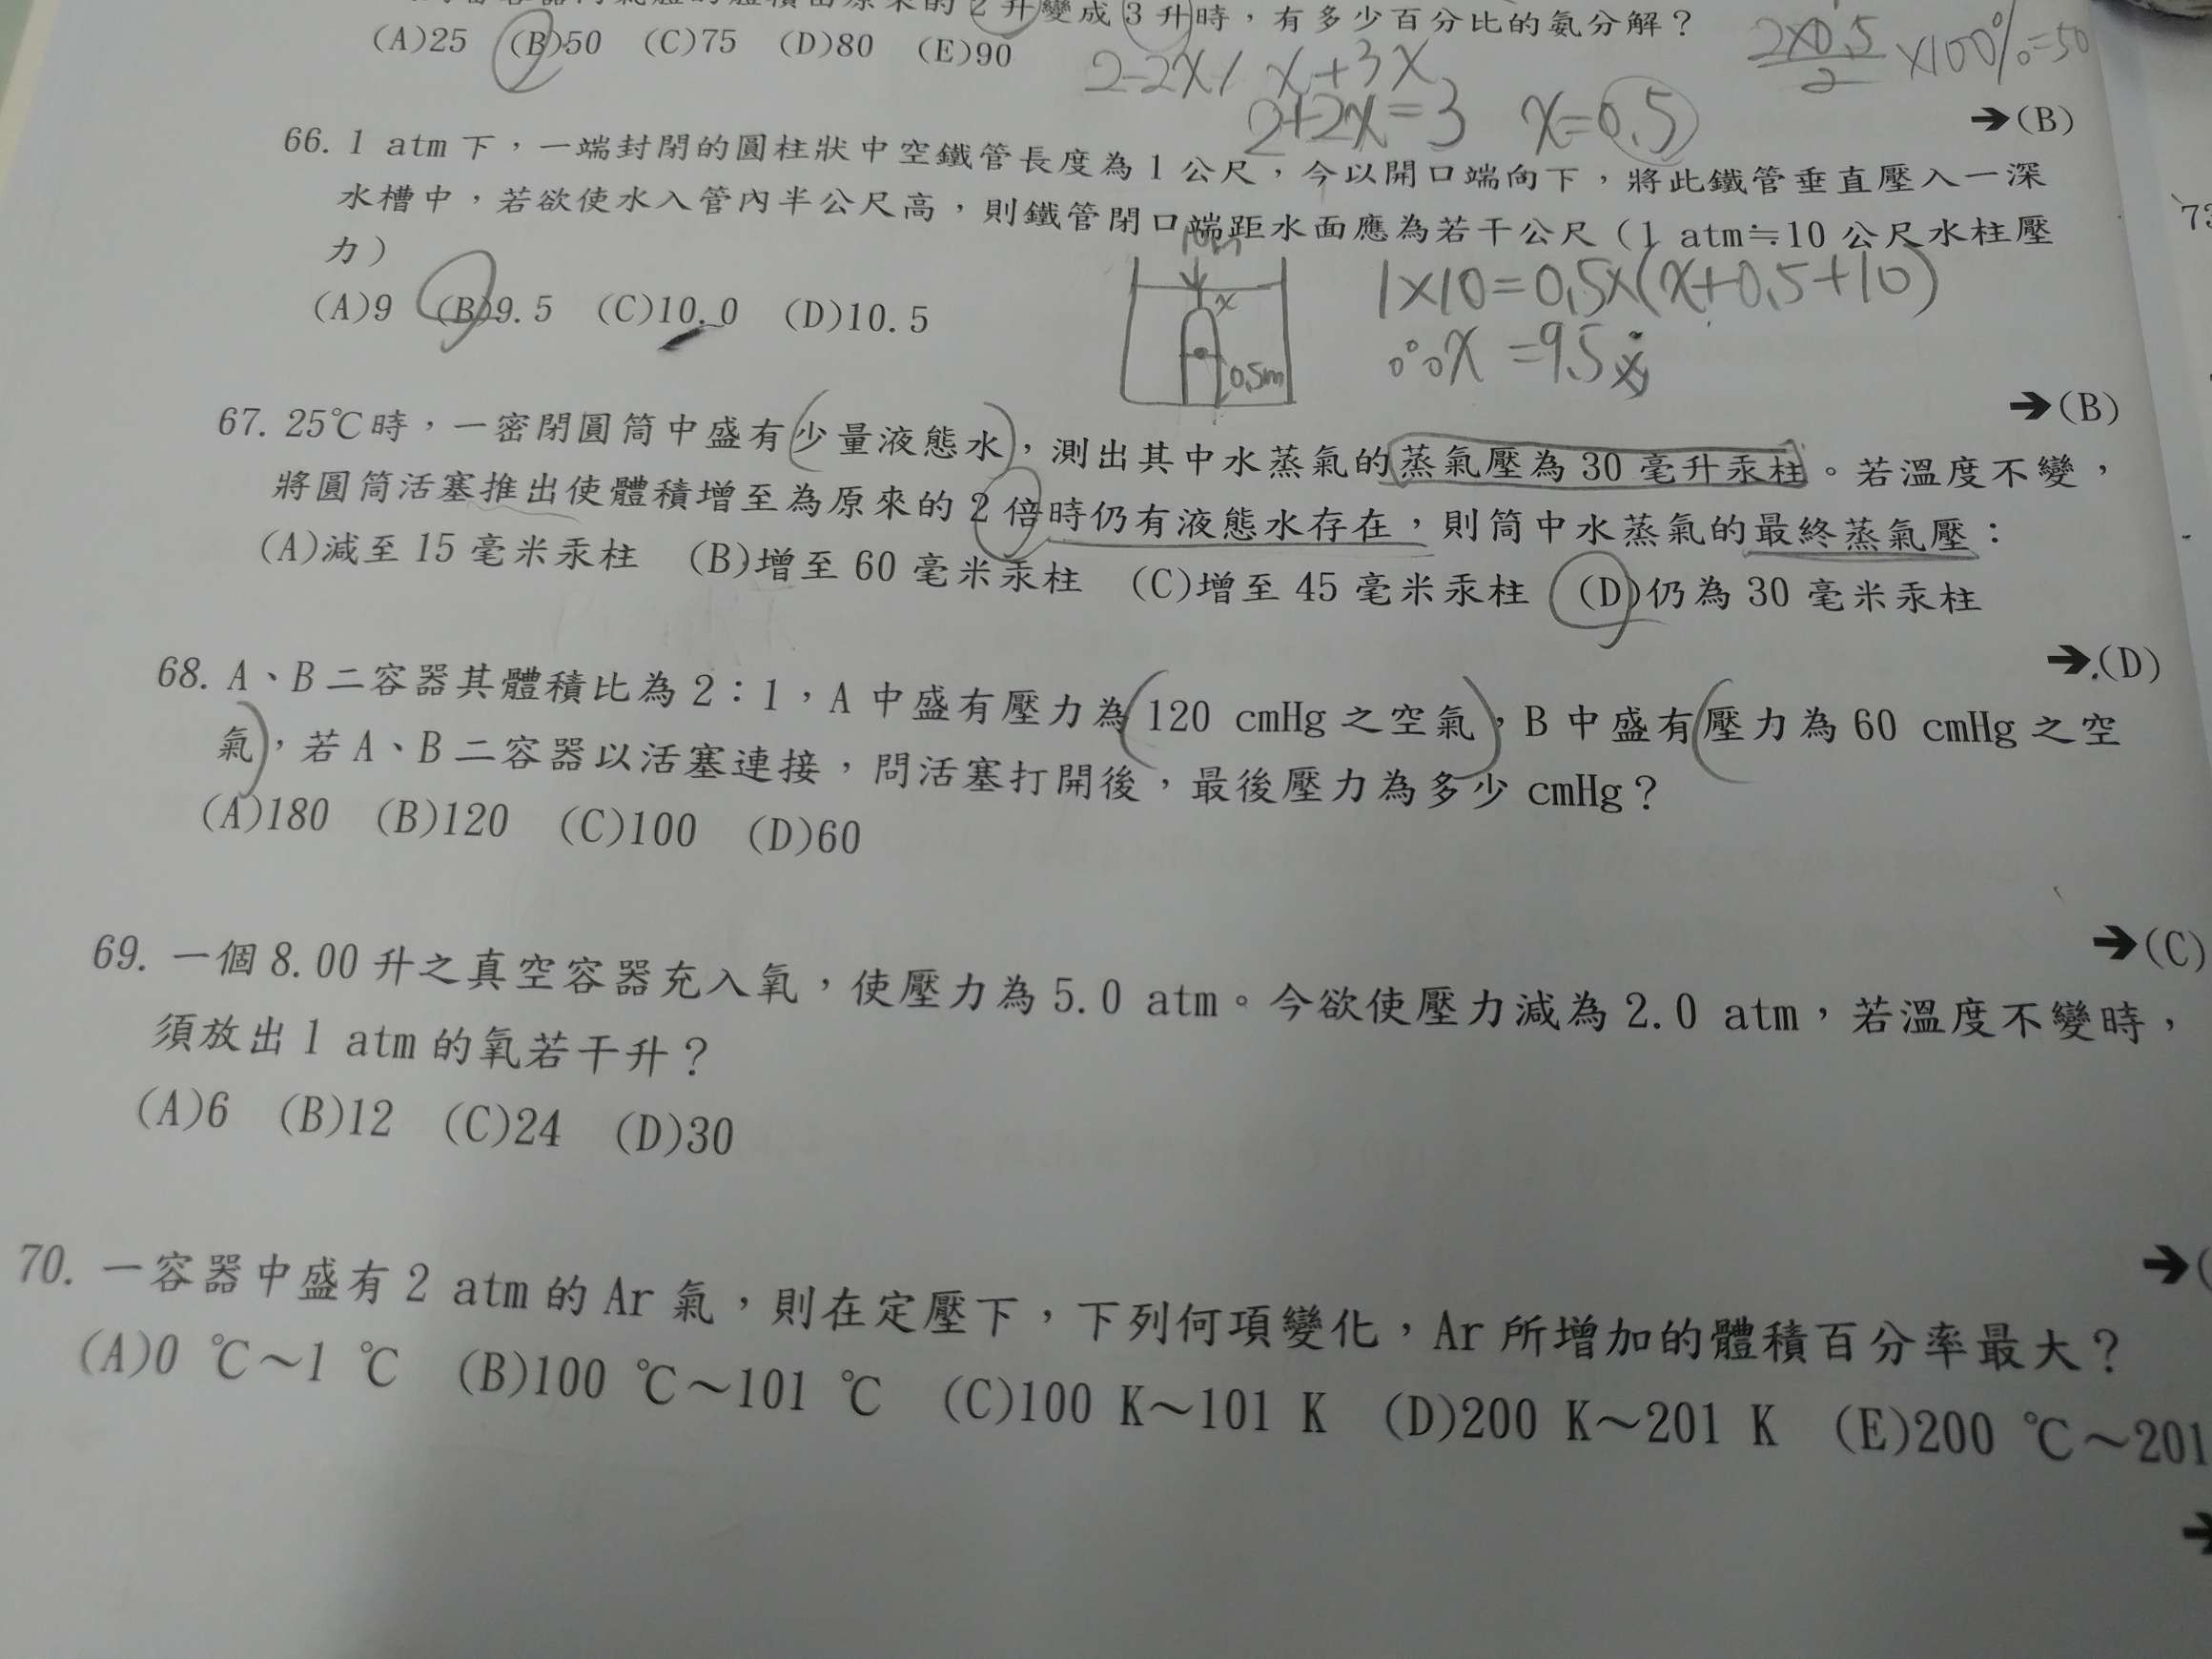 2升變成3升時，有多少百分比的氨分解？
(A)25 (B)50 (C)75 (D)80 (E)90
2-2X/ X+3X
2+2X=3 X=0.5
2×0.5/2 ×100%=50
→(B)
66. 1 atm下，一端封閉的圓柱狀中空鐵管長度為1公尺，今以開口端向下，將此鐵管垂直壓入一深
水槽中，若欲使水入管內半公尺高，則鐵管閉口端距水面應為若干公尺（1 atm≒10公尺水柱壓
力）
(A)9 (B)9.5 (C)10.0 (D)10.5
10m
x
0.5m
1×10=0.5×(x+0.5+10)
∴X=9.5
→(B)
67. 25℃時，一密閉圓筒中盛有少量液態水，測出其中水蒸氣的蒸氣壓為30毫升汞柱。若溫度不變，
將圓筒活塞推出使體積增至為原來的2倍時仍有液態水存在，則筒中水蒸氣的最終蒸氣壓：
(A)減至15毫米汞柱 (B)增至60毫米汞柱 (C)增至45毫米汞柱 (D)仍為30毫米汞柱
→(D)
68. A、B二容器其體積比為2：1，A中盛有壓力為120 cmHg之空氣，B中盛有壓力為60 cmHg之空
氣，若A、B二容器以活塞連接，問活塞打開後，最後壓力為多少cmHg？
(A)180 (B)120 (C)100 (D)60
→(C)
69. 一個8.00升之真空容器充入氧，使壓力為5.0 atm。今欲使壓力減為2.0 atm，若溫度不變時，
須放出1 atm的氧若干升？
(A)6 (B)12 (C)24 (D)30
→(
70. 一容器中盛有2 atm的Ar氣，則在定壓下，下列何項變化，Ar所增加的體積百分率最大？
(A)0 ℃～1 ℃ (B)100 ℃～101 ℃ (C)100 K～101 K (D)200 K～201 K (E)200 ℃～201
→
73